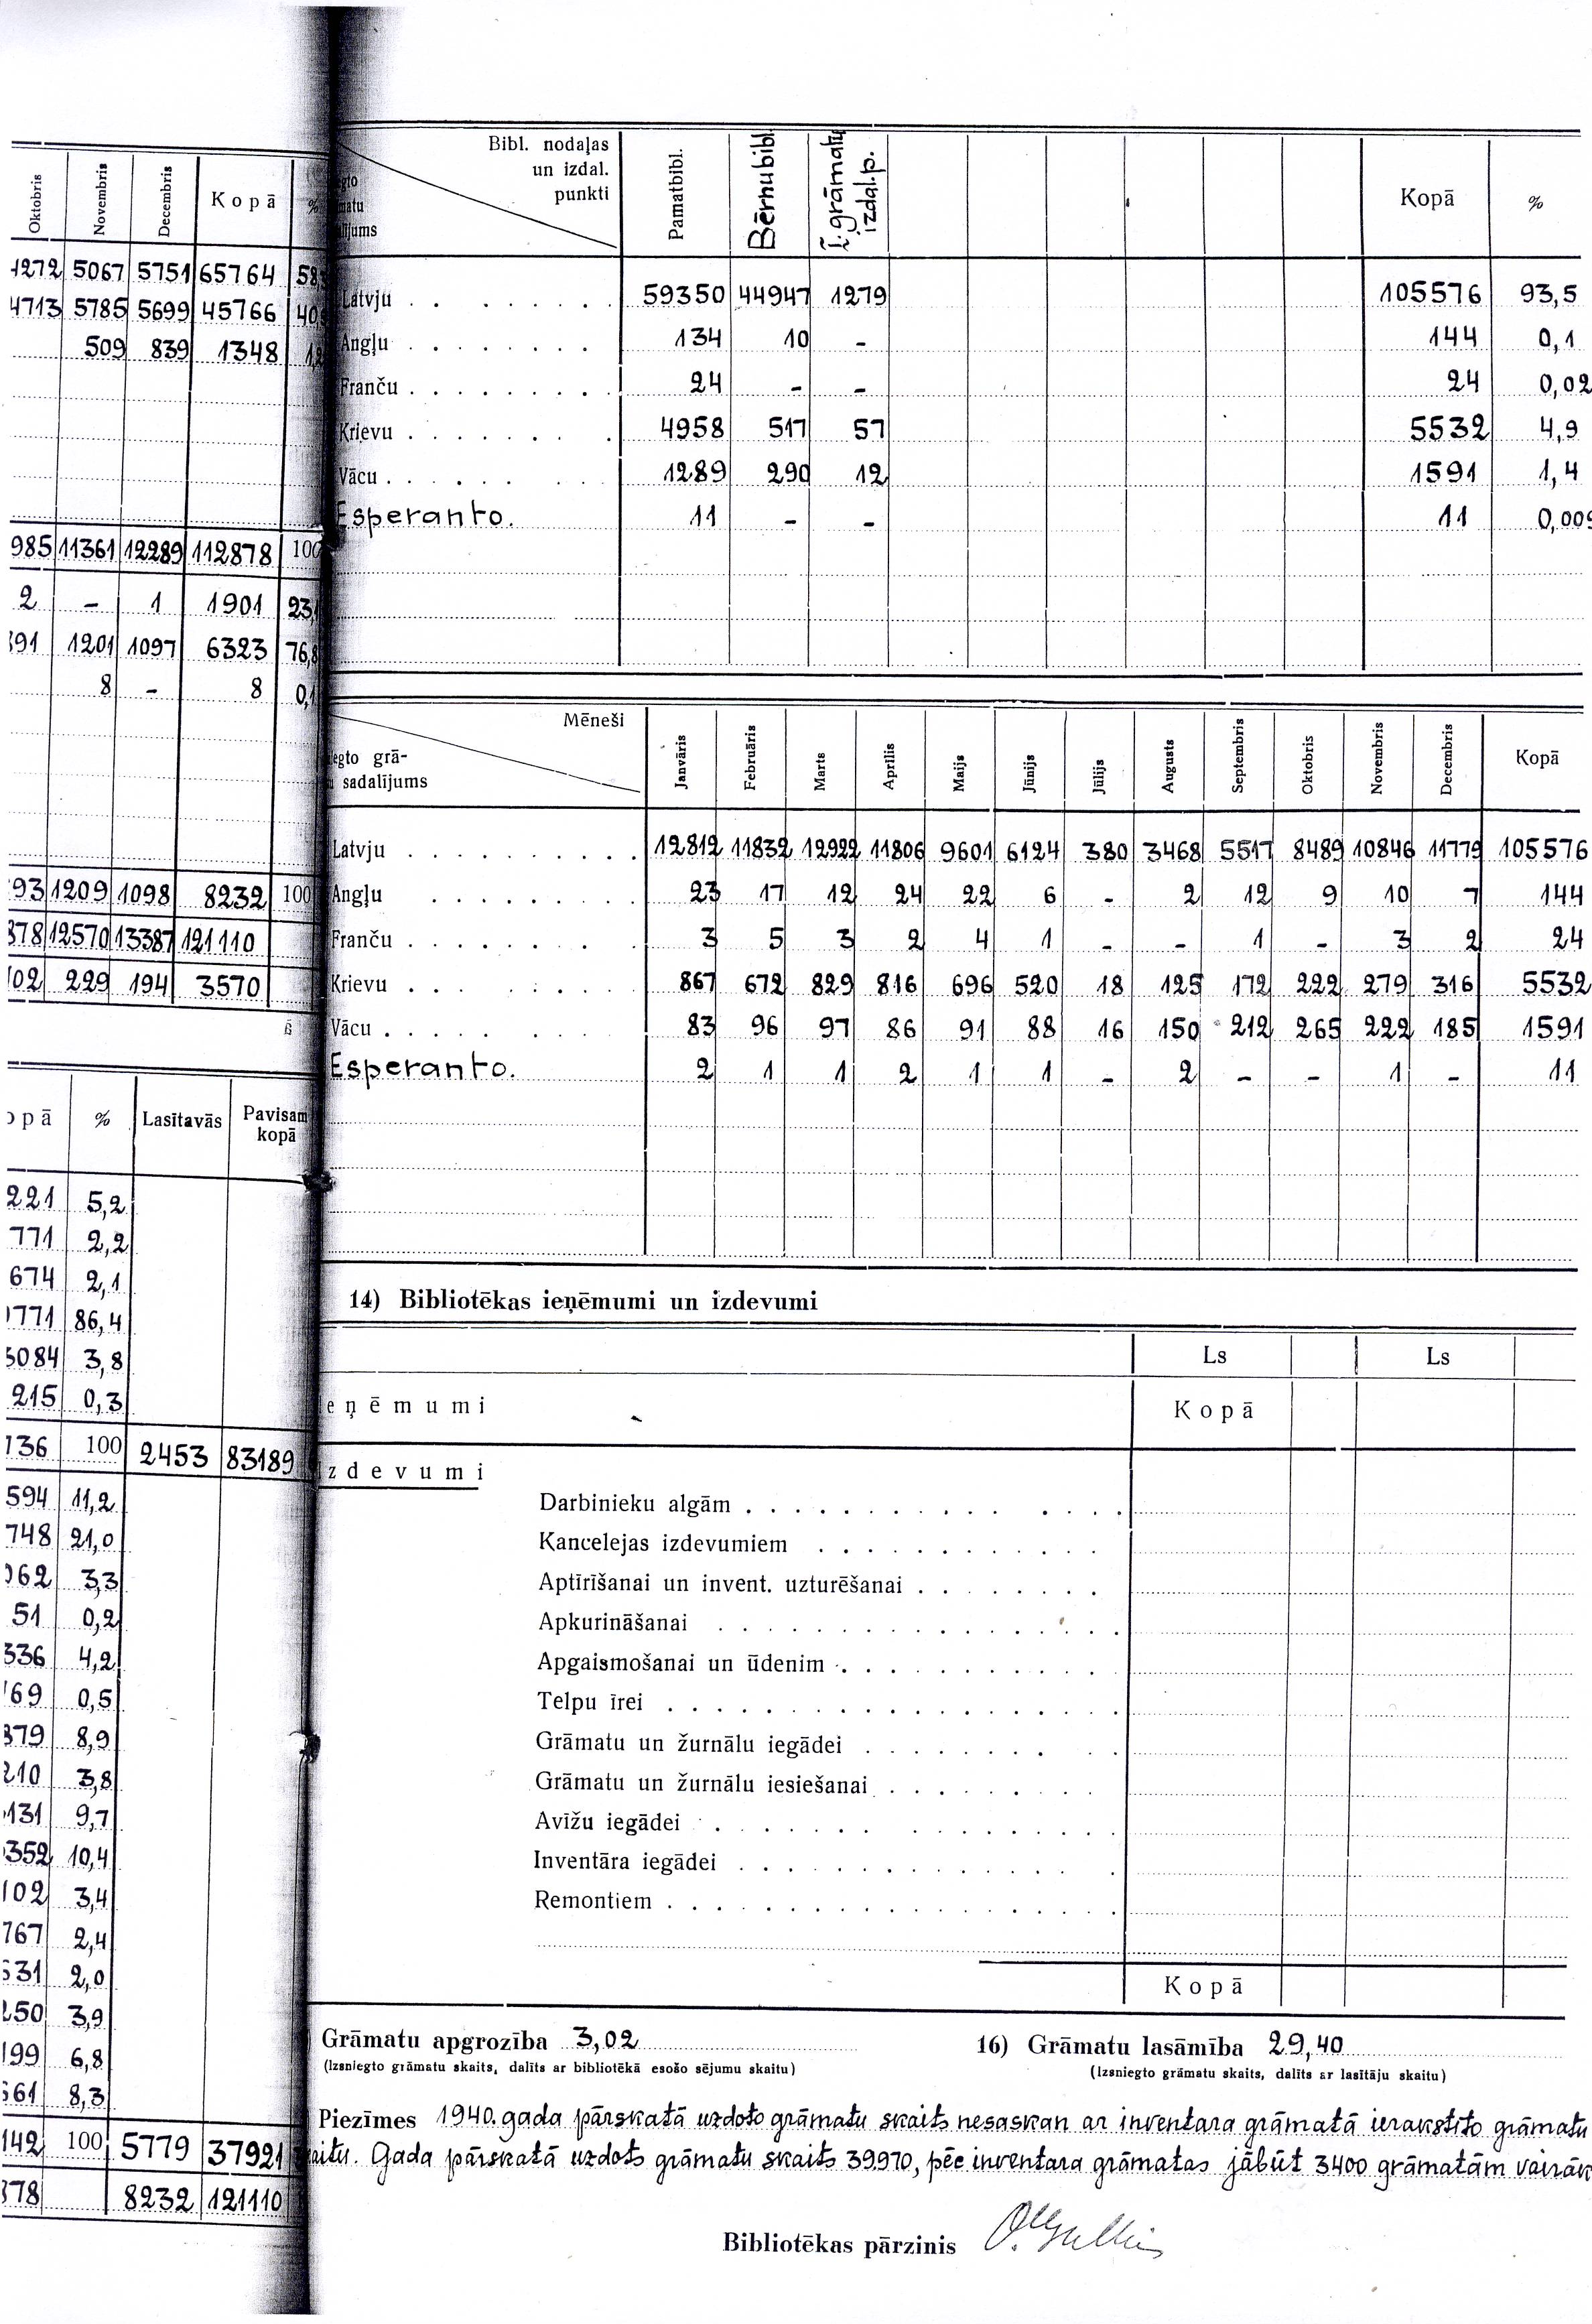 Oktobris Novembris Decembris Kopā %
4272 5067 5751 65764 58,3
4713 5785 5699 45766 40,5
509 839 1348 1,2
985 11361 12289 112878 100
2 – 1 1901 23,1
391 1201 1097 6323 76,8
8 – 8 0,1
93 1209 1098 8232 100
378 12570 13387 121110
102 229 194 3570
opā % Lasītavās Pavisam kopā
221 5,2
771 2,2
674 2,1
771 86,4
5084 3,8
215 0,3
736 100 2453 83189
594 11,2
748 21,0
062 3,3
51 0,2
336 4,2
169 0,5
879 8,9
210 3,8
131 9,7
352 10,4
102 3,4
767 2,4
631 2,0
250 3,9
199 6,8
661 8,3
142 100 5779 37921
378 8232 121110
Bibl. nodaļas
un izdal.
punkti
Pamatbibl. Bērnubibl. I. grāmatu izdal.p. Kopā %
Latvju 59350 44947 1279 105576 93,5
Angļu 134 10 – 144 0,1
Franču 24 – – 24 0,02
Krievu 4958 517 57 5532 4,9
Vācu 1289 290 12 1591 1,4
Esperanto. 11 – – 11 0,009
Mēneši
egto grā-
sadalījums
Janvāris Februāris Marts Aprīlis Maijs Jūnijs Jūlijs Augusts Septembris Oktobris Novembris Decembris Kopā
Latvju 12812 11832 12922 11806 9601 6124 380 3468 5517 8489 10846 11779 105576
Angļu 23 17 12 24 22 6 – 2 12 9 10 7 144
Franču 3 5 3 2 4 1 – – 1 – 3 2 24
Krievu 867 672 829 816 696 520 18 125 172 222 279 316 5532
Vācu 83 96 97 86 91 88 16 150 212 265 222 185 1591
Esperanto. 2 1 1 2 1 1 – 2 – – 1 – 11
14) Bibliotēkas ieņēmumi un izdevumi
Ls Ls
eņēmumi Kopā
zdevumi
Darbinieku algām
Kancelejas izdevumiem
Aptīrīšanai un invent. uzturēšanai
Apkurināšanai
Apgaismošanai un ūdenim
Telpu īrei
Grāmatu un žurnālu iegādei
Grāmatu un žurnālu iesiešanai
Avīžu iegādei
Inventāra iegādei
Remontiem
Kopā
Grāmatu apgrozība 3,02 16) Grāmatu lasāmība 29,40
(Izsniegto grāmatu skaits, dalīts ar bibliotēkā esošo sējumu skaitu) (Izsniegto grāmatu skaits, dalīts ar lasītāju skaitu)
Piezīmes 1940. gada pārskatā uzdoto grāmatu skaits nesaskan ar inventara grāmatā ierakstīto grāmatu
aitu. Gada pārskatā uzdots grāmatu skaits 39.970, pēc inventara grāmatas jābūt 3400 grāmatām vairāk
Bibliotēkas pārzinis